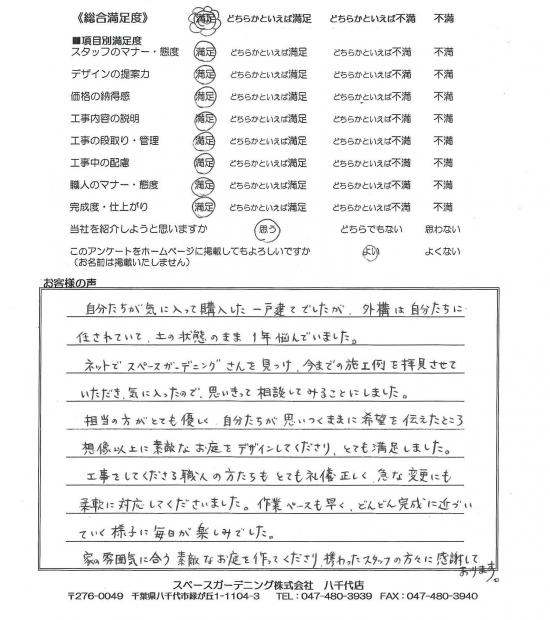 《総合満足度》 満足 どちらかといえば満足 どちらかといえば不満 不満
■項目別満足度
スタッフのマナー・態度 満足 どちらかといえば満足 どちらかといえば不満 不満
デザインの提案力 満足 どちらかといえば満足 どちらかといえば不満 不満
価格の納得感 満足 どちらかといえば満足 どちらかといえば不満 不満
工事内容の説明 満足 どちらかといえば満足 どちらかといえば不満 不満
工事の段取り・管理 満足 どちらかといえば満足 どちらかといえば不満 不満
工事中の配慮 満足 どちらかといえば満足 どちらかといえば不満 不満
職人のマナー・態度 満足 どちらかといえば満足 どちらかといえば不満 不満
完成度・仕上がり 満足 どちらかといえば満足 どちらかといえば不満 不満
当社を紹介しようと思いますか 思う どちらでもない 思わない
このアンケートをホームページに掲載してもよろしいですか よい よくない
(お名前は掲載いたしません)
お客様の声
自分たちが気に入って購入した一戸建てでしたが、外構は自分たちに
任されていて、土の状態のまま1年悩んでいました。
ネットでスペースガーデニングさんを見つけ、今までの施工例を拝見させて
いただき、気に入ったので、思いきって相談してみることにしました。
担当の方がとても優しく、自分たちが思いつくままに希望を伝えたところ
想像以上に素敵なお庭をデザインしてくださり、とても満足しました。
工事をしてくださる職人の方たちもとても礼儀正しく、急な変更にも
柔軟に対応してくださいました。作業ペースも早く、どんどん完成に近づい
ていく様子に毎日が楽しみでした。
家の雰囲気に合う素敵なお庭を作ってくださり、携わったスタッフの方々に感謝して
おります。
スペースガーデニング株式会社 八千代店
〒276-0049 千葉県八千代市緑が丘1-1104-3 TEL:047-480-3939 FAX:047-480-3940